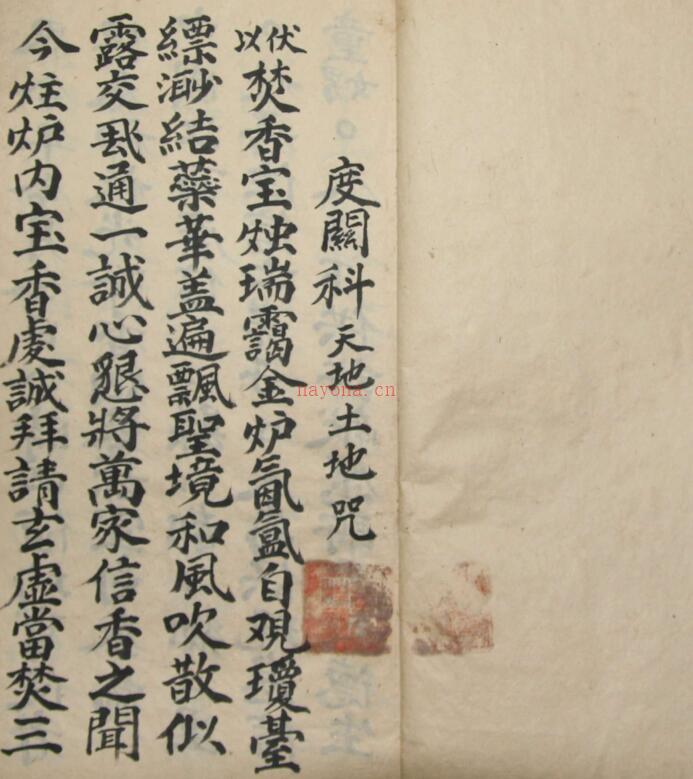 度關科天地土地咒
伏以焚香宝烛瑞靄金炉氤氲自观瓊臺
縹渺結蘂華盖遍飄聖境和風吹散似
露交致通一誠心懇將萬家信香之聞
今炷炉内宝香虔誠拜請玄虛當焚三
nayona.cn